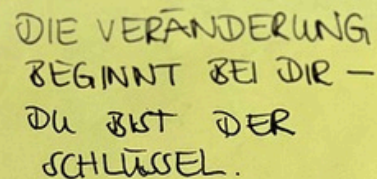 DIE VERÄNDERUNG
BEGINNT BEI DIR –
DU BIST DER
SCHLÜSSEL.